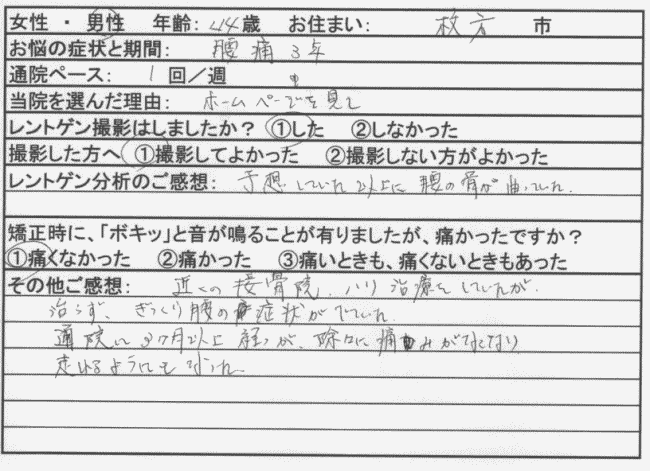 女性 ・ 男性　年齢: 44 歳　お住まい: 枚方 市
お悩の症状と期間: 腰痛 3年
通院ペース: 1 回／週
当院を選んだ理由: ホームページを見て
レントゲン撮影はしましたか？ ①した ②しなかった
撮影した方へ ①撮影してよかった ②撮影しない方がよかった
レントゲン分析のご感想: 予想していた以上に腰の骨が曲っていた.
矯正時に、「ボキッ」と音が鳴ることが有りましたが、痛かったですか？
①痛くなかった ②痛かった ③痛いときも、痛くないときもあった
その他ご感想: 近くの接骨院、ハリ治療をしていたが.
治らず、ぎっくり腰の症状がでていた.
通院して3ヶ月以上経つが、除々に痛みがなくなり
走れるようにもなった.